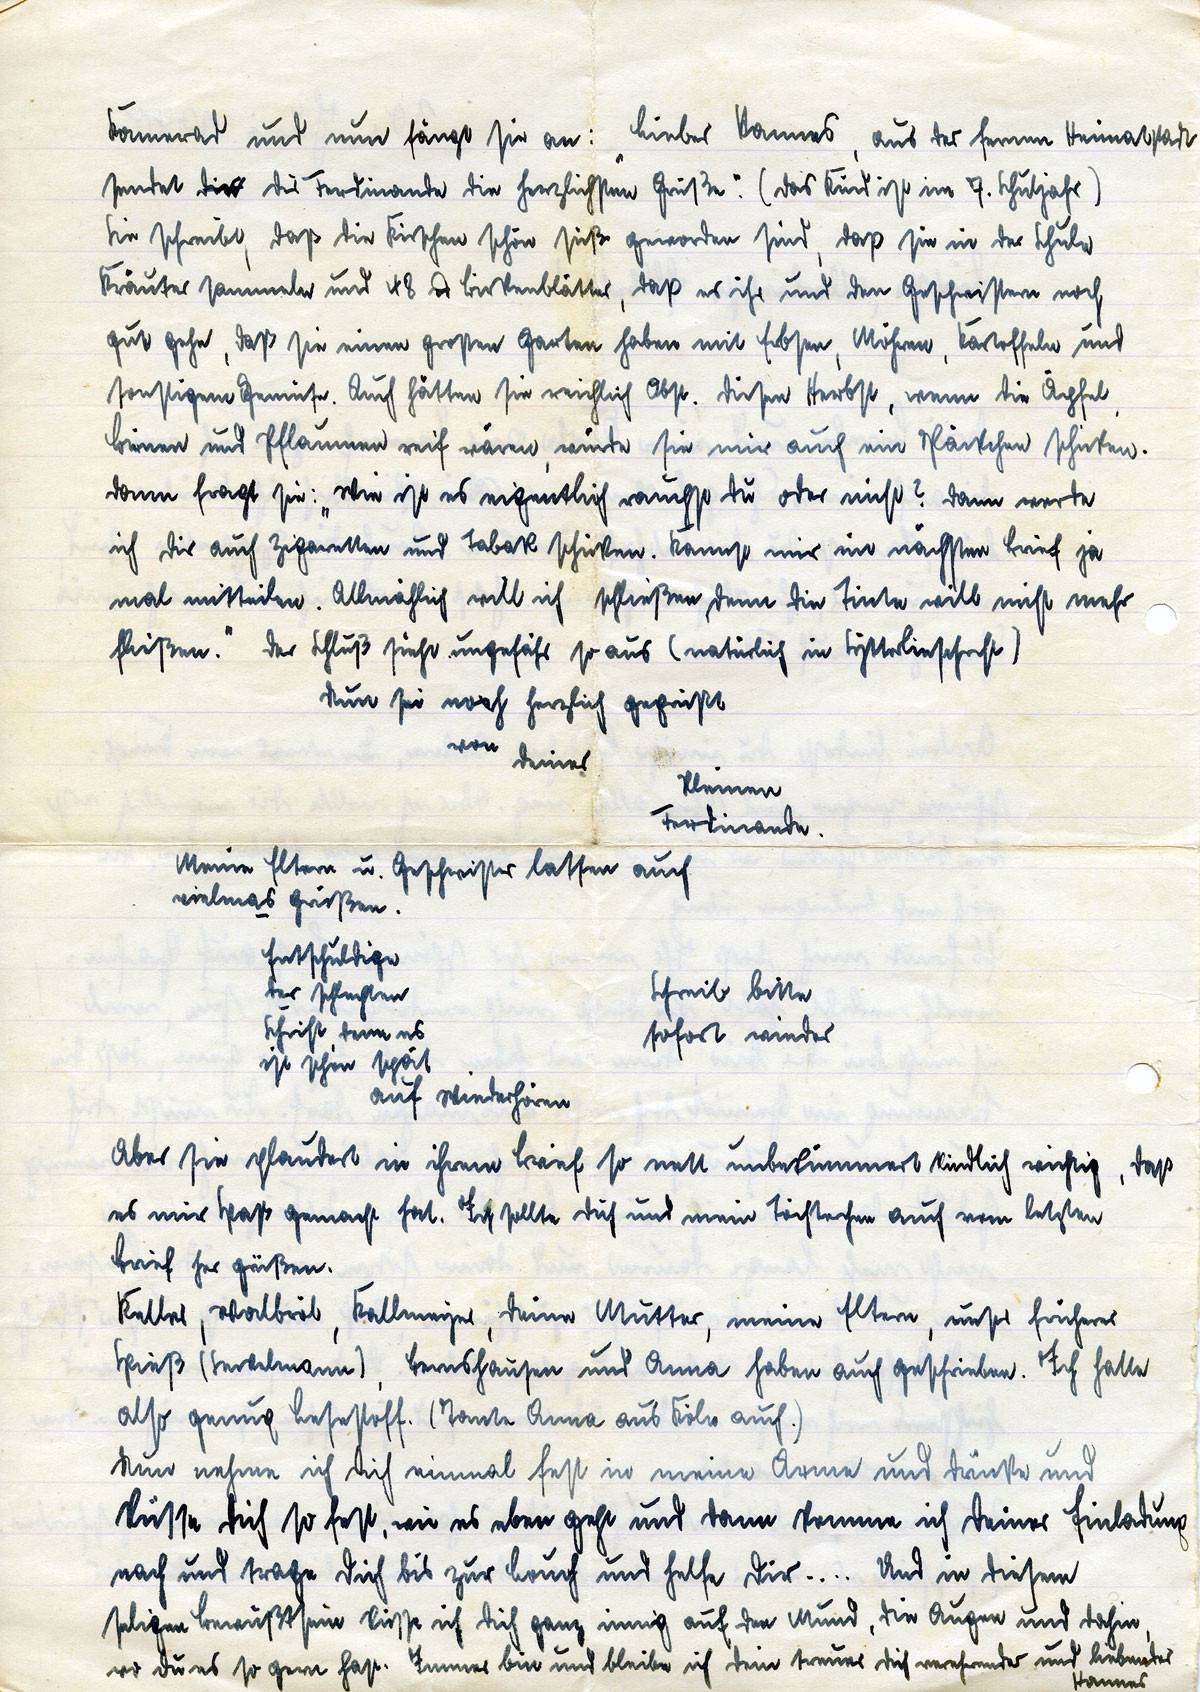 Kamerad und nun fängt sie an: „Lieber Hannes, aus der fernen Heimatstadt
sendet dir die Ferdinande die herzlichsten Grüße". (das Kind ist im 7. Schuljahr)
Sie schreibt, daß die Kirschen schön süß geworden sind, daß sie in der Schule
Kräuter sammeln und 48 ℔ Birkenblätter, daß es ihr und den Geschwistern noch
gut gehe, daß sie einen großen Garten haben mit Erbsen, Möhren, Kartoffeln und
sonstigem Gemüse. Auch hätten sie reichlich Obst. Diesen Herbst, wenn die Äpfel,
Birnen und Pflaumen reif wären, würde sie mir auch ein Päckchen schicken.
Dann fragt sie: „Wie ist es eigentlich rauchst du oder nicht? Dann werde
ich dir auch Zigaretten und Tabak schicken. Kannst mir im nächsten Brief ja
mal mitteilen. Allmählich will ich schließen denn die Tinte will nicht mehr
fleißen." Der Schluß sieht ungefähr so aus (natürlich in Sütterlinschrift)
Nun sei noch herzlich gegrüßt
von deiner
kleinen
Ferdinande.
Meine Eltern u. Geschwister lassen auch
vielmas grüßen.
Entschuldige
der schlechten
Schrift, denn es
ist schon spät
Schreib bitte
sofort wieder
auf Wiederhören
Aber sie plaudert in ihrem Brief so nett unbekümmert kindlich wichtig, daß
es mir Spaß gemacht hat. Ich sollte dich und mein Töchterchen auch vom letzten
Brief her grüßen.
Keller, Walbröl, Kallmeyer, deine Mutter, meine Eltern, unser früherer
Spieß (Serkelmann), Bernshausen und Anna haben auch geschrieben. Ich hatte
also genug Lesestoff. (Tante Anna aus Köln auch.)
Nun nehme ich dich einmal fest in meine Arme und drücke und
küsse dich so fest, wie es eben geht und dann komme ich deiner Einladung
nach und trage dich bis zur Couch und helfe dir.... Und in diesem
seligen Bewußtsein küsse ich dich ganz innig auf den Mund, die Augen und dahin,
wo du es so gern hast. Immer bin und bleibe ich dein treuer dich verehrender und liebender
Hannes